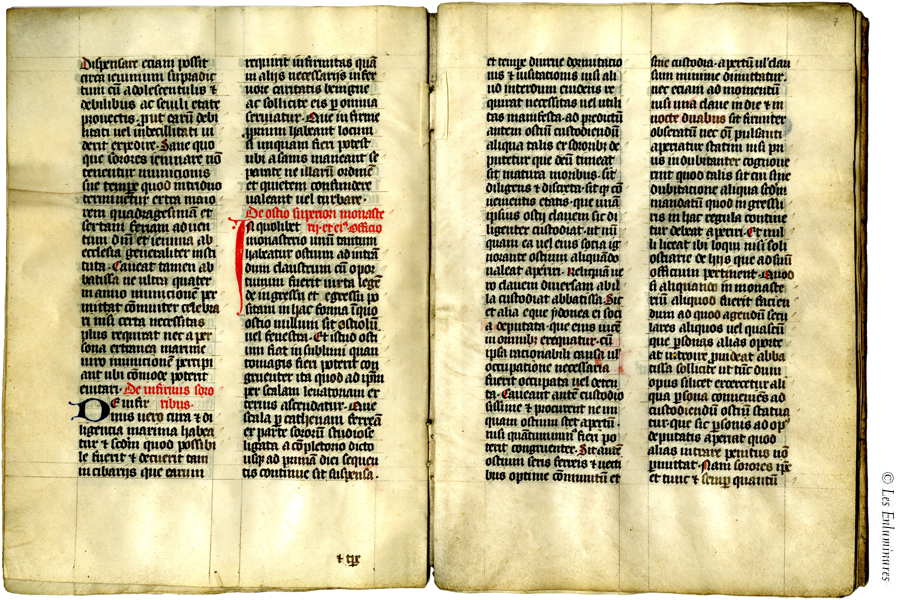 Dispensare eciam possit
circa ieiunium supradic
tum cū adolescentulis &
debilibus ac senili etate
prouectis. put earū debi
litati uel inbecillitati ui
derit expedire. Sane quo
que sorores ieiunare nō
teneantur minucionis
sue tempe quod in triduo
terminetur extra maio
rem quadragesimā et
sextam feriam aduen
tum dnī et ieiunia ab
ecclesia generaliter insti
tuta. Caueat tamen ab
batissa ne ultra quater
in anno minucionē per
mittat cōmuniter celebra
ri nisi certa necessitas
plus requirat nec a per
sona extranea maxime
uiro minucionē percipi
ant ubi cōmode poterit
euitari. De infirmis soro
ribus.
De infir
mis uero cura & di
ligencia maxima habea
tur & scdm quod possibi
le fuerit & decuerit tam
in cibarijs que earum
requirit infirmitas quā
in alijs necessarijs in fer
uore caritatis benigne
ac sollicite eis p omnia
seruiatur. Que infirme
pprium habeant locum
si umquam fieri potest
ubi a sanis maneant se
parate ne illarū ordinē
et quietem confundere
ualeant uel turbare.
De ostio superiori monaste
rij. et ei9 officio
In quolibet
monasterio unū tantum
habeatur ostium ad intrā
dum claustrum cū opor
tunum fuerit iuxta legē
de ingressu et egressu po
sitam in hac forma ī quo
ostio nullum sit ostiolū
uel fenestra. Et istud osti
um fiat in sublimi quan
tomagis fieri poterit con
gruenter ita quod ad ipm
per scalam leuatoriam ex
terius ascendatur. Que
scala p cathenam ferreā
ex parte sororū studiose
ligata a cōpletorio dicto
usq ad primā diei sequen
tis continue sit suspensa.
& tpe
7
et tempe diurne dormitatio
nis & uisitationis nisi ali
ud interdum euidens re
quirat necessitas uel utili
tas manifesta. ad predictū
autem ostiū custodiendū
aliqua talis ex sororibȝ de
putetur que deū timeat
sit matura moribus. sit
diligens & discreta. sitq cō
uenientis etatis. que unā
ipsius ostij clauem sic di
ligenter custodiat. ut nū
quam ea uel eius socia ig
norante ostium aliquādo
ualeat aperiri. Reliquā ue
ro clauem diuersam ab il
la custodiat abbatissa. Sit
et alia eque ydonea ei soci
a deputata. que eius uicē
in omnibȝ exequatur. cū
ipsa rationabili causa ul'
occupatione necessaria
fuerit occupata uel deten
ta. Caueant autē studio
sissime & procurent ne un
quam ostium stet apertū.
nisi quātumminꝰ fieri po
terit congruenter. Sit autē
ostium seris ferreis & uecti
bus optime cōmunitū et
sine custodia. apertū ul' clau
sum minime dimittatur.
nec eciam ad momentū
nisi una claue in die & in
nocte duabus sit firmiter
obseratū nec oī pulsanti
aperiatur statim nisi pri
us indubitanter cognoue
rint quod talis sit cui sine
dubitatione aliqua scdm
mandatū quod in gressu
ris in hac regula contine
tur debeat aperiri. Et nul
li liceat ibi loqui nisi soli
ostiarie de hijs que ad suū
officium pertinent. Quod
si aliquando in monaste
riū aliquod fuerit facien
dum ad quod agendū secu
lares aliquos uel quascū
que psonas alias oporte
at introire puideat abba
tissa sollicite ut tūc dum
opus silicet exercetur ali
qua psona conueniēs ad
custodiendū ostium statua
tur. que sic psonis ad opꝰ
deputatis aperiat quod
alias intrare penitus nō
pmittat. Nam sorores ipse
et tunc & semp quantū
© Les Enluminures